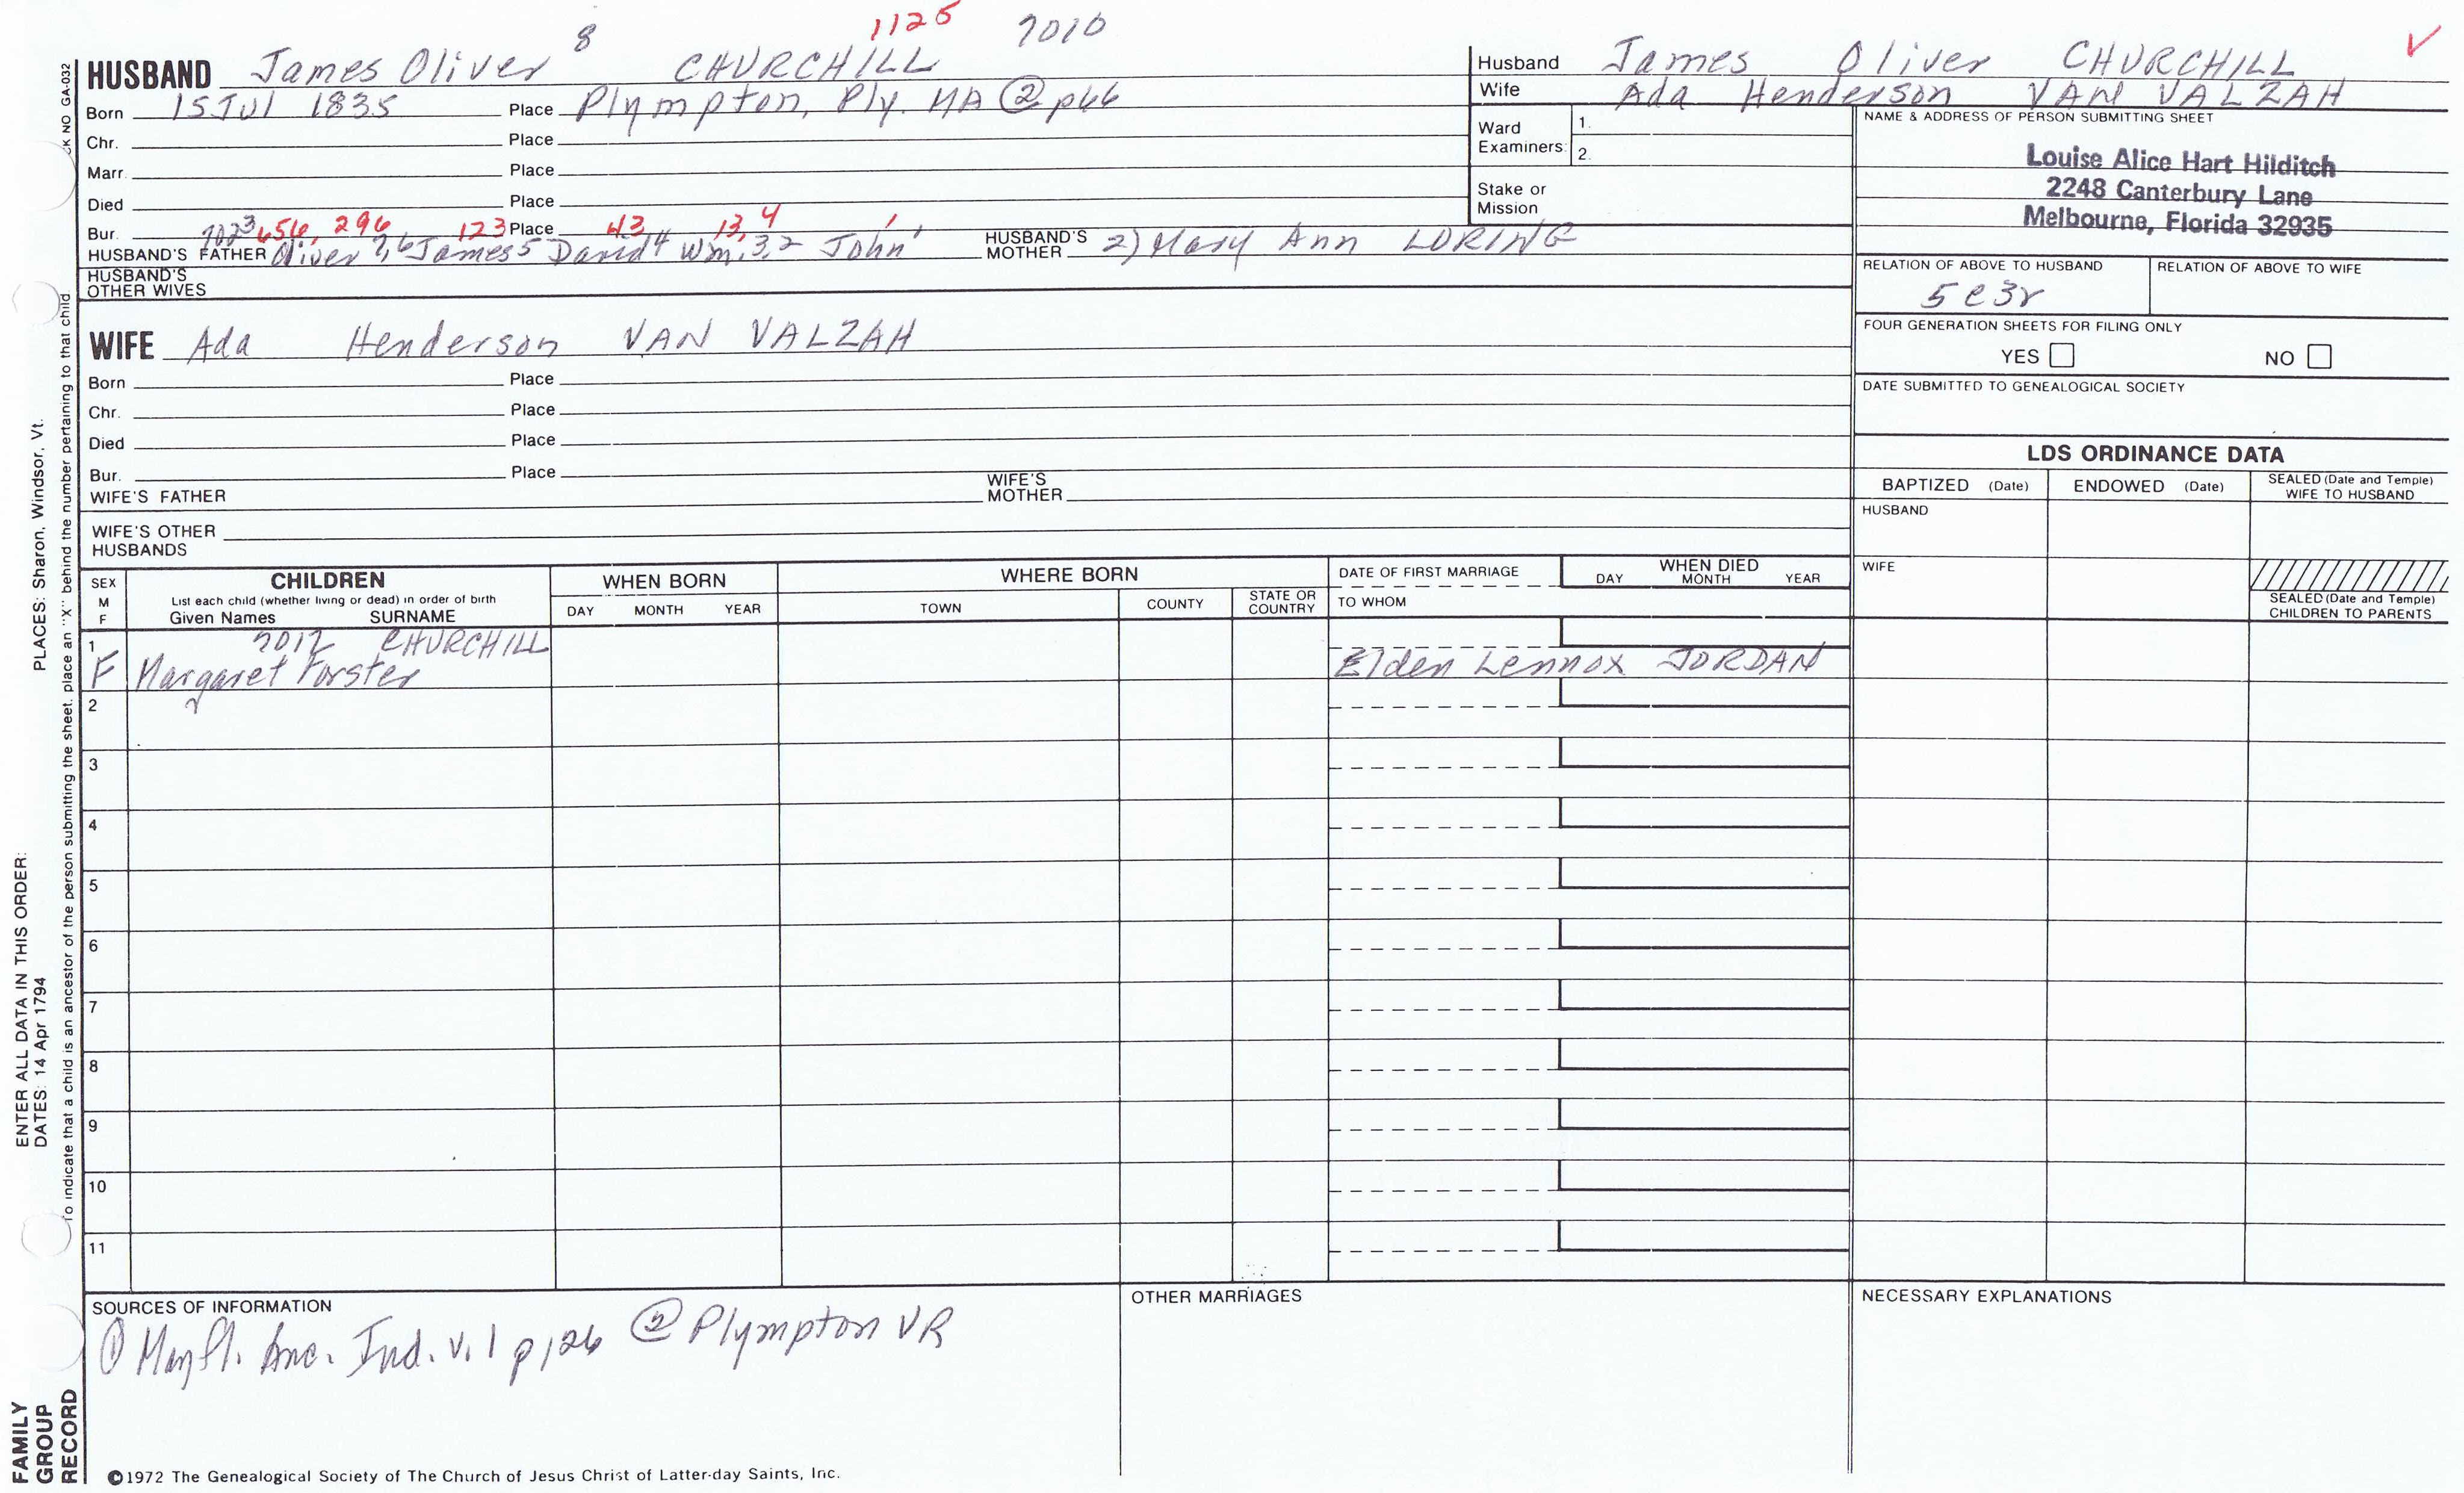 8 1125 7010
HUSBAND James Oliver CHURCHILL
Born 15 Jul 1835 Place Plympton, Ply. MA @ p66
Chr. Place
Marr. Place
Died Place
Bur. Place
7023 656, 296 123 43 13, 4 1
HUSBAND'S FATHER Oliver 7,6 James 5 David 4 Wm. 3,2 John 1 HUSBAND'S MOTHER 2) Mary Ann LORING
HUSBAND'S OTHER WIVES
Husband James Oliver CHURCHILL ✓
Wife Ada Henderson VAN VALZAH
Ward Examiners: 1.
2.
Stake or Mission
NAME & ADDRESS OF PERSON SUBMITTING SHEET
Louise Alice Hart Hilditch
2248 Canterbury Lane
Melbourne, Florida 32935
RELATION OF ABOVE TO HUSBAND RELATION OF ABOVE TO WIFE
5c3r
FOUR GENERATION SHEETS FOR FILING ONLY
YES NO
DATE SUBMITTED TO GENEALOGICAL SOCIETY
WIFE Ada Henderson VAN VALZAH
Born Place
Chr. Place
Died Place
Bur. Place
WIFE'S FATHER WIFE'S MOTHER
WIFE'S OTHER HUSBANDS
LDS ORDINANCE DATA
BAPTIZED (Date) ENDOWED (Date) SEALED (Date and Temple) WIFE TO HUSBAND
HUSBAND
WIFE
SEALED (Date and Temple) CHILDREN TO PARENTS
SEX M F
CHILDREN
List each child (whether living or dead) in order of birth
Given Names SURNAME
WHEN BORN
DAY MONTH YEAR
WHERE BORN
TOWN COUNTY STATE OR COUNTRY
DATE OF FIRST MARRIAGE
TO WHOM
WHEN DIED
DAY MONTH YEAR
1 7012 CHURCHILL
F Margaret Forster Elden Lennox JORDAN
2
3
4
5
6
7
8
9
10
11
SOURCES OF INFORMATION
① Mayfl. Anc. Ind. v. 1 p 126 @ Plympton VR
OTHER MARRIAGES
NECESSARY EXPLANATIONS
©1972 The Genealogical Society of The Church of Jesus Christ of Latter-day Saints, Inc.
CK NO GA-032
To indicate that a child is an ancestor of the person submitting the sheet, place an "X" behind the number pertaining to that child
PLACES: Sharon, Windsor, Vt.
ENTER ALL DATA IN THIS ORDER:
DATES: 14 Apr 1794
FAMILY
GROUP
RECORD